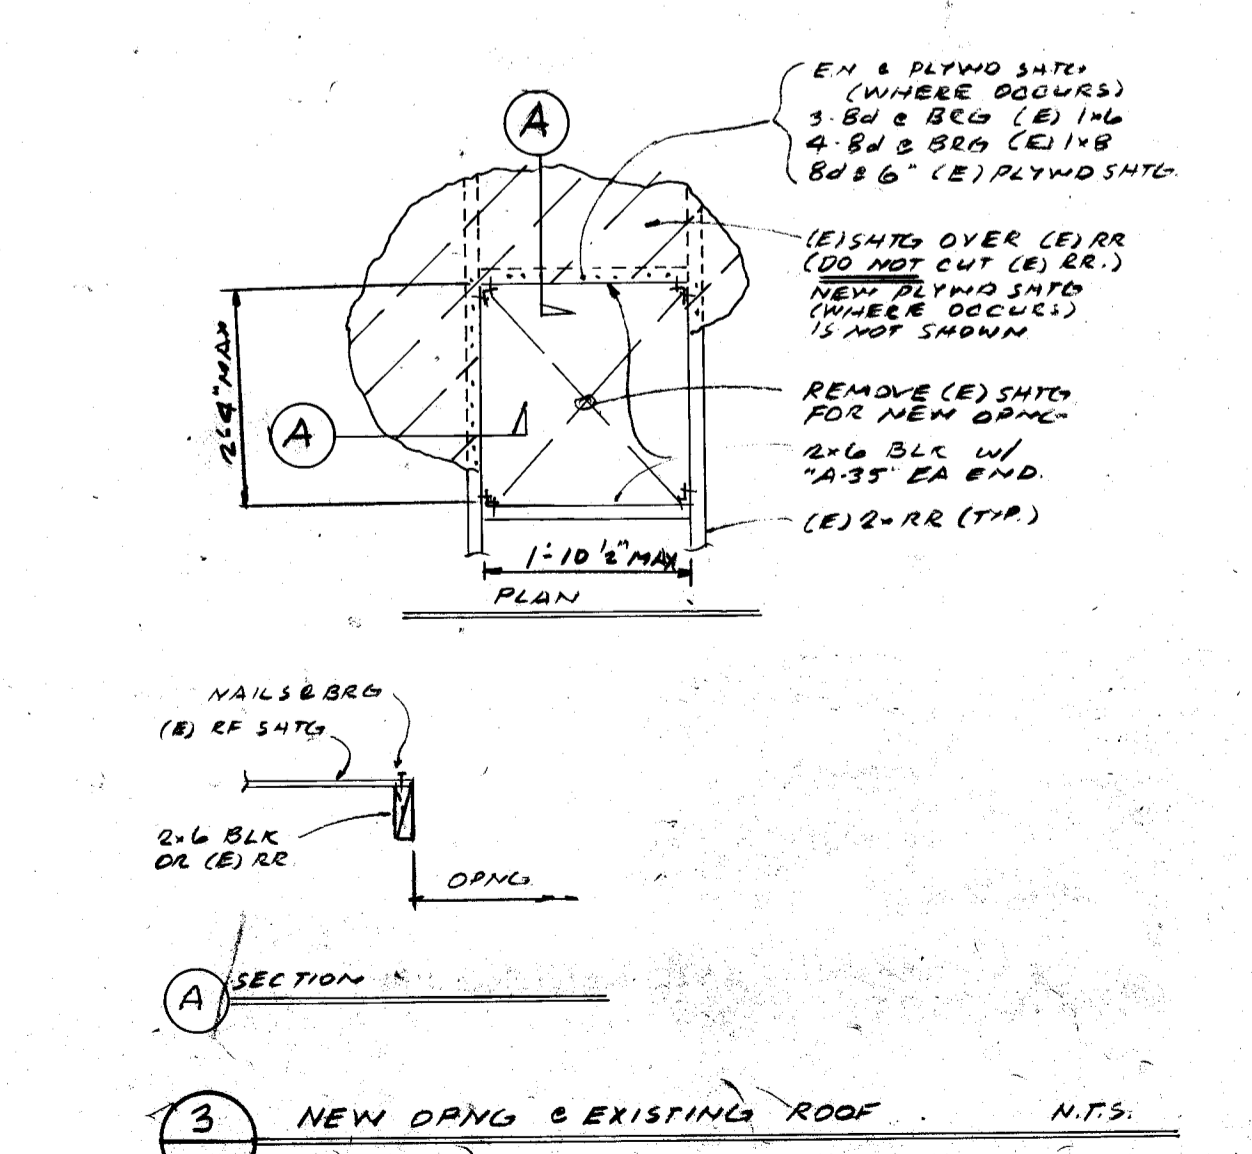 EN @ PLYWD SHTG
(WHERE OCCURS)
3-8d @ BRG (E) 1x6
4-8d @ BRG (E) 1x8
8d @ 6" (E) PLYWD SHTG.
A
(E) SHTG OVER (E) RR
(DO NOT CUT (E) RR.)
NEW PLYWD SHTG
(WHERE OCCURS)
IS NOT SHOWN
REMOVE (E) SHTG
FOR NEW OPNG
2x6 BLK W/
"A-35" EA END.
(E) 2x RR (TYP.)
A
MAX
1'-10 1/2" MAX
PLAN
NAILS @ BRG
(E) RF SHTG
2x6 BLK
OR (E) RR
OPNG
A SECTION
3 NEW OPNG @ EXISTING ROOF N.T.S.